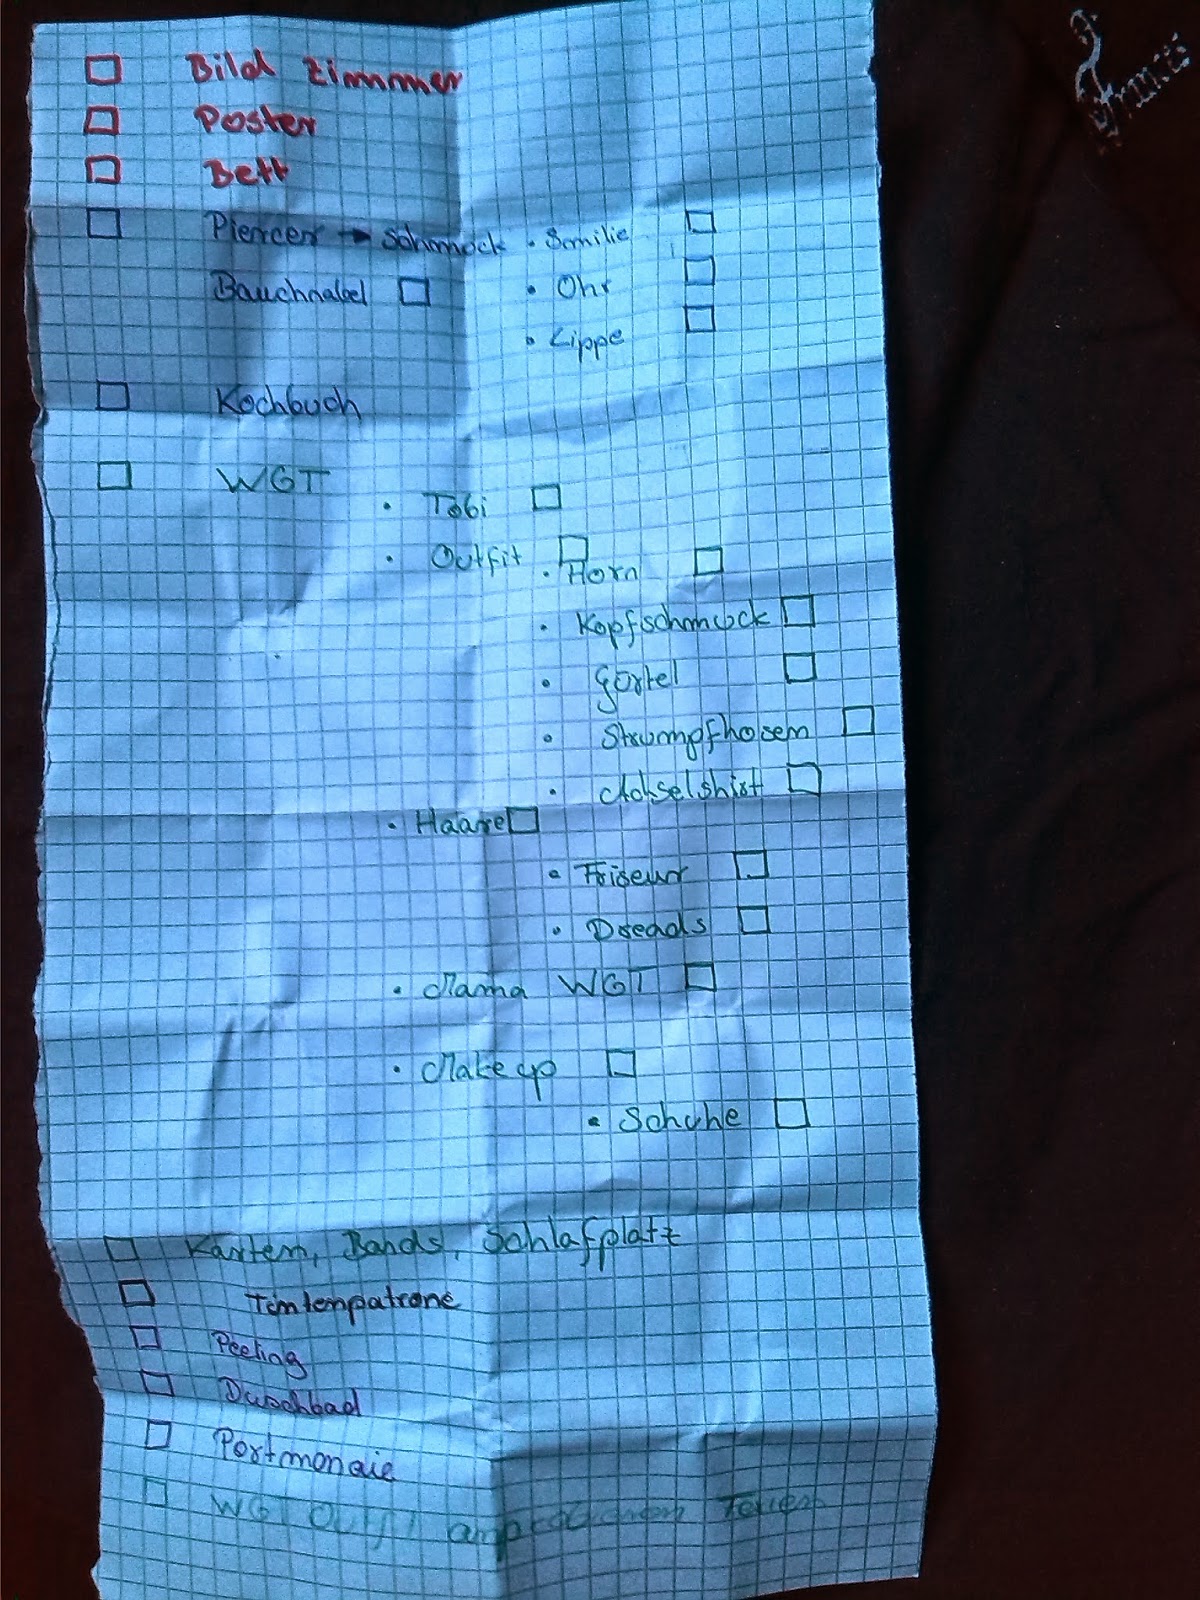 Bild Zimmer
Poster
Bett
Piercer → Schmuck • Smilie
Bauchnabel • Ohr
• Lippe
Kochbuch
WGT
• Tobi
• Outfit • Horn
• Kopfschmuck
• Gürtel
• Strumpfhosen
• Achselshirt
• Haare
• Friseur
• Dreads
• Mama WGT
• Make up
• Schuhe
Karten, Bands, Schlafplatz
Tintenpatrone
Peeling
Duschbad
Portmonaie
WGT Outfit
Frances